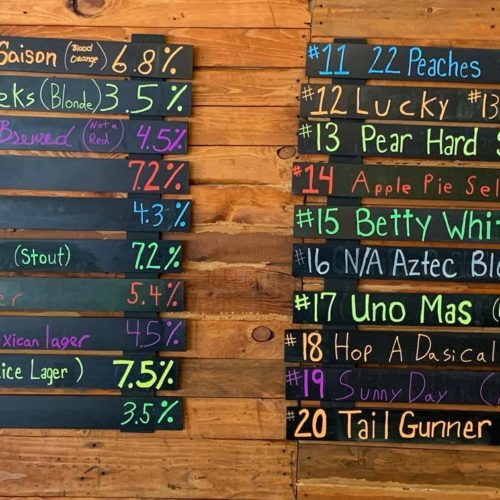 Saison (Blood Orange) 6.8%
eks (Blonde) 3.5%
Brewed (Not a Red) 4.5%
7.2%
4.3%
(Stout) 7.2%
er 5.4%
exican lager 4.5%
ice Lager) 7.5%
3.5%
#11 22 Peaches
#12 Lucky #13
#13 Pear Hard S
#14 Apple Pie Sel
#15 Betty Whit
#16 N/A Aztec Blo
#17 Uno Mas (
#18 Hop A Dasical
#19 Sunny Day (
#20 Tail Gunner